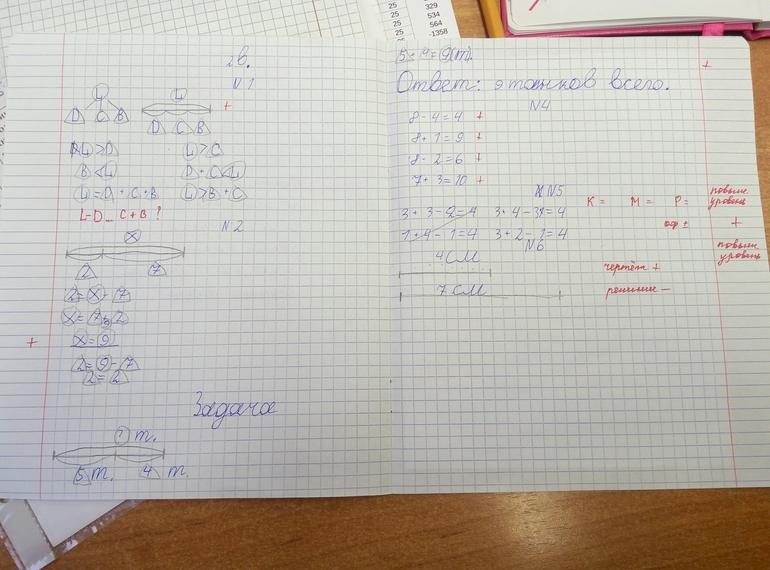 25 329
25 534
25 564
25 -1358
2в.
N 1
Ц
Ц +
D C B
D C B
Ц > D Ц > C
B < Ц D + C < Ц
Ц = D + C + B Ц > B + C
Ц - D ... C + B ?
N 2
X
2 7
2 = X - 7
X = 7 + 2
+ X = 9
2 = 9 - 7
2 = 2
Задача
? т.
5 т. 4 т.
5 + 4 = 9(т).
+
Ответ: 9 тонков всего.
N4
8 - 4 = 4 +
8 + 1 = 9 +
8 - 2 = 6 +
7 + 3 = 10 +
N5
3 + 3 - 2 = 4 3 + 4 - 3 = 4
1 + 4 - 1 = 4 3 + 2 - 1 = 4
К = М = Р = повыш. уровень
оф ± +
N6
4 СМ
7 СМ
чертёж +
решение -
повыш уровень